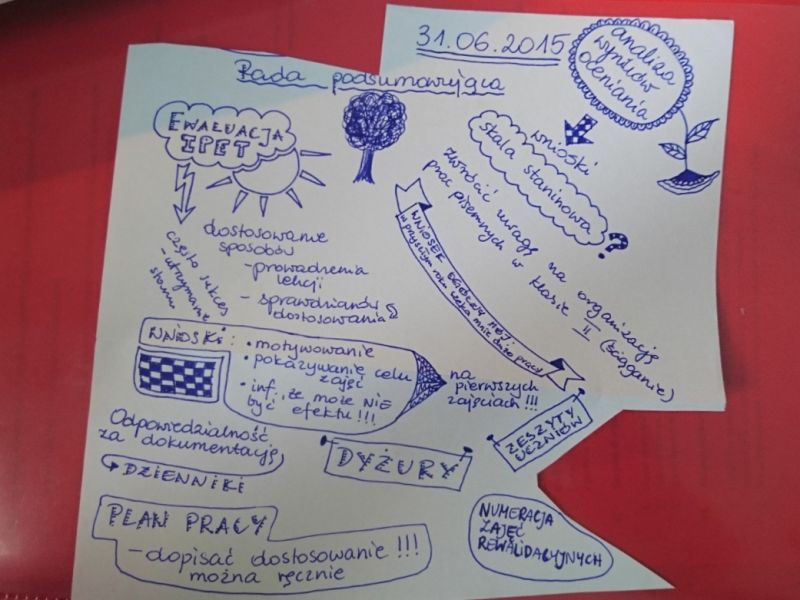 31.06.2015
Rada podsumowująca
analiza
wyników
oceniania
EWALUACJA
IPET
wnioski
skala staninowa
?
zwrócić uwagę na organizację
prac pisemnych w klasie II (ściąganie)
dostosowanie
sposobów
- prowadzenia
lekcji
- sprawdzianów
dostosowania
często sukces
- utrzymanie
stanu
WNIOSEK
w przyszłym roku czeka mnie dużo pracy
WNIOSKI:
• motywowanie
• pokazywanie celu
zajęć
• inf., że może NIE
być efektu!!!
na
pierwszych
zajęciach!!!
Odpowiedzialność
za dokumentację
DZIENNIKI
DYŻURY
ZESZYTY
UCZNIÓW
PLAN PRACY
- dopisać dostosowanie!!!
można ręcznie
NUMERACJA
ZAJĘĆ
REWALIDACYJNYCH